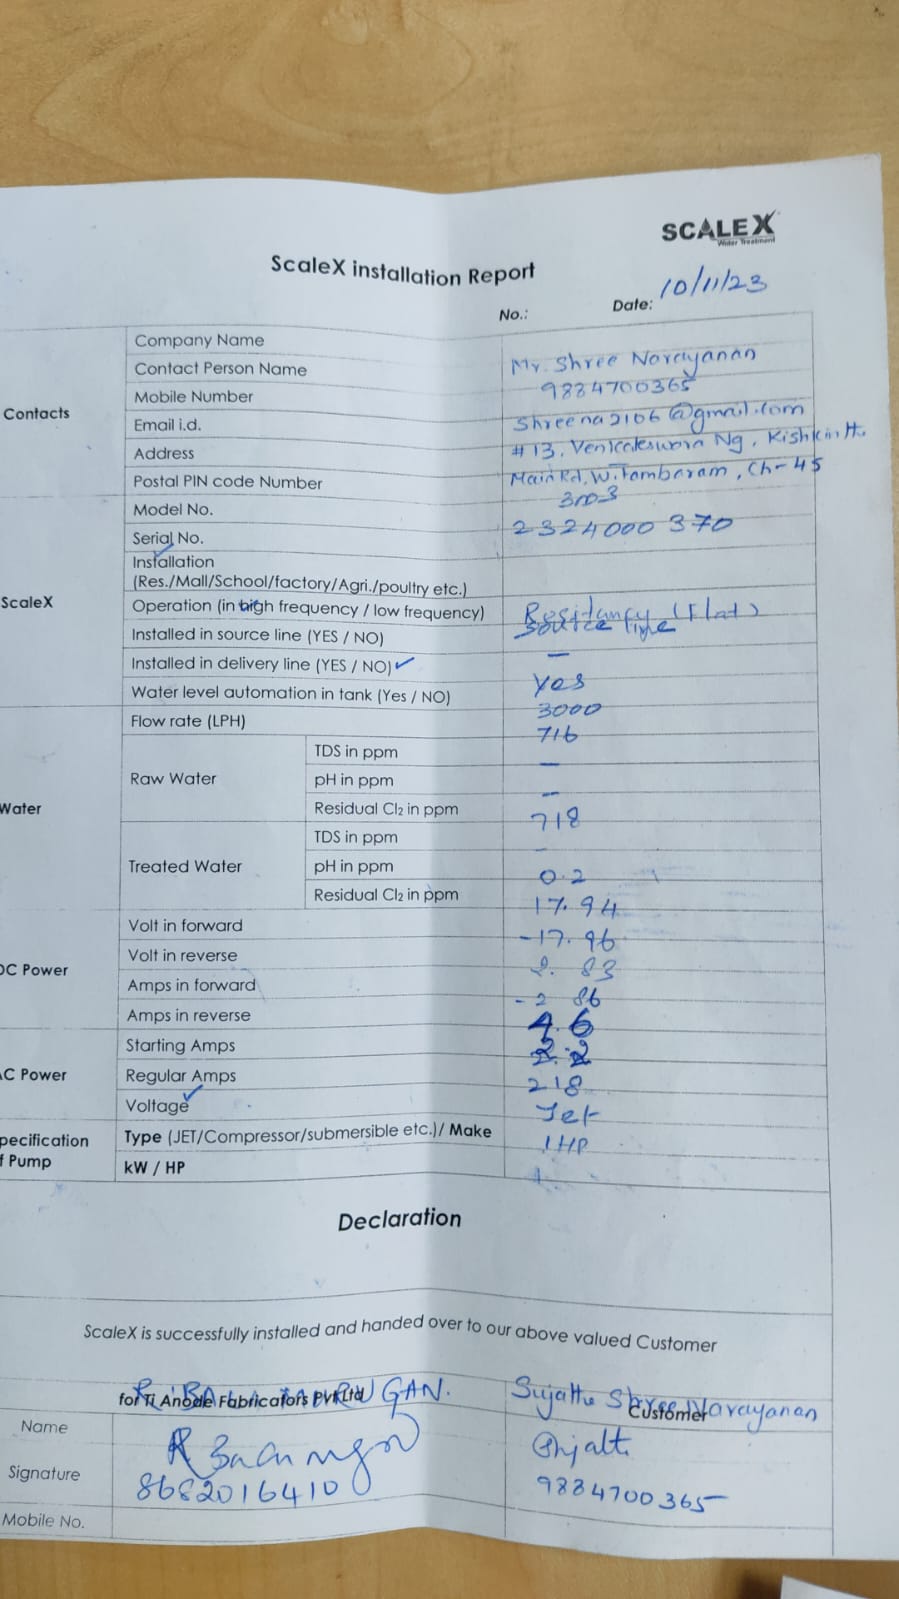 SCALEX
Water Treatment
ScaleX installation Report
No.: Date: 10/11/23
Contacts
Company Name
Contact Person Name Mr. Shree Narayanan
Mobile Number 9884700365
Email i.d. Shreena2106@gmail.com
Address #13, Venkateswara Ng, Kishkinth
Postal PIN code Number Main Rd, W.Tambaram, Ch-45
ScaleX
Model No. 3003
Serial No. 2324000370
Installation
(Res./Mall/School/factory/Agri./poultry etc.)
Operation (in high frequency / low frequency) Residancy (Flat)
Installed in source line (YES / NO) Source line
Installed in delivery line (YES / NO) ✓ –
Water level automation in tank (Yes / NO) Yes
Water
Flow rate (LPH) 3000
Raw Water
TDS in ppm 716
pH in ppm –
Residual Cl2 in ppm –
Treated Water
TDS in ppm 718
pH in ppm –
Residual Cl2 in ppm 0.2
DC Power
Volt in forward 17.94
Volt in reverse -17.96
Amps in forward 2.83
Amps in reverse -2 86
AC Power
Starting Amps 4.6
Regular Amps 2.2
Voltage 218
pecification
f Pump
Type (JET/Compressor/submersible etc.)/ Make Jet
kW / HP 1HP
Declaration
ScaleX is successfully installed and handed over to our above valued Customer
for Ti Anode Fabricators Pvt Ltd Customer
Name Sujatha Shree Narayanan
Signature
8682016410 9884700365
Mobile No.